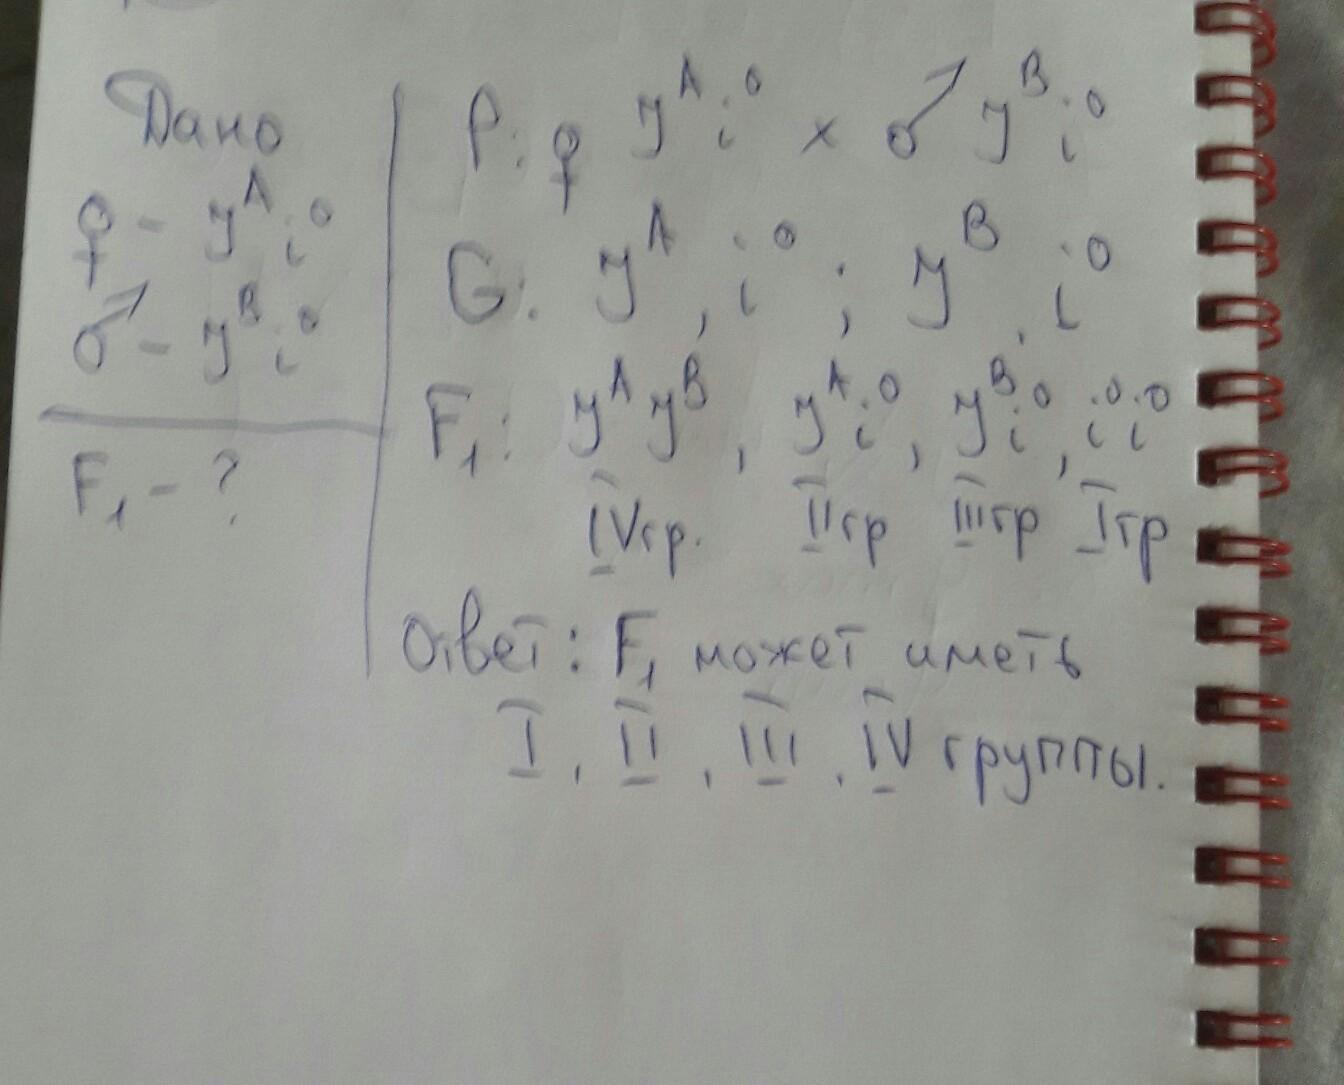 Дано
♀ - J^A i^o
♂ - J^B i^o
F₁ - ?
P: ♀ J^A i^o × ♂ J^B i^o
G: J^A, i^o ; J^B, i^o
F₁: J^A J^B, J^A i^o, J^B i^o, i^o i^o
IV гр. II гр III гр I гр
Ответ: F₁ может иметь
I, II, III, IV группы.